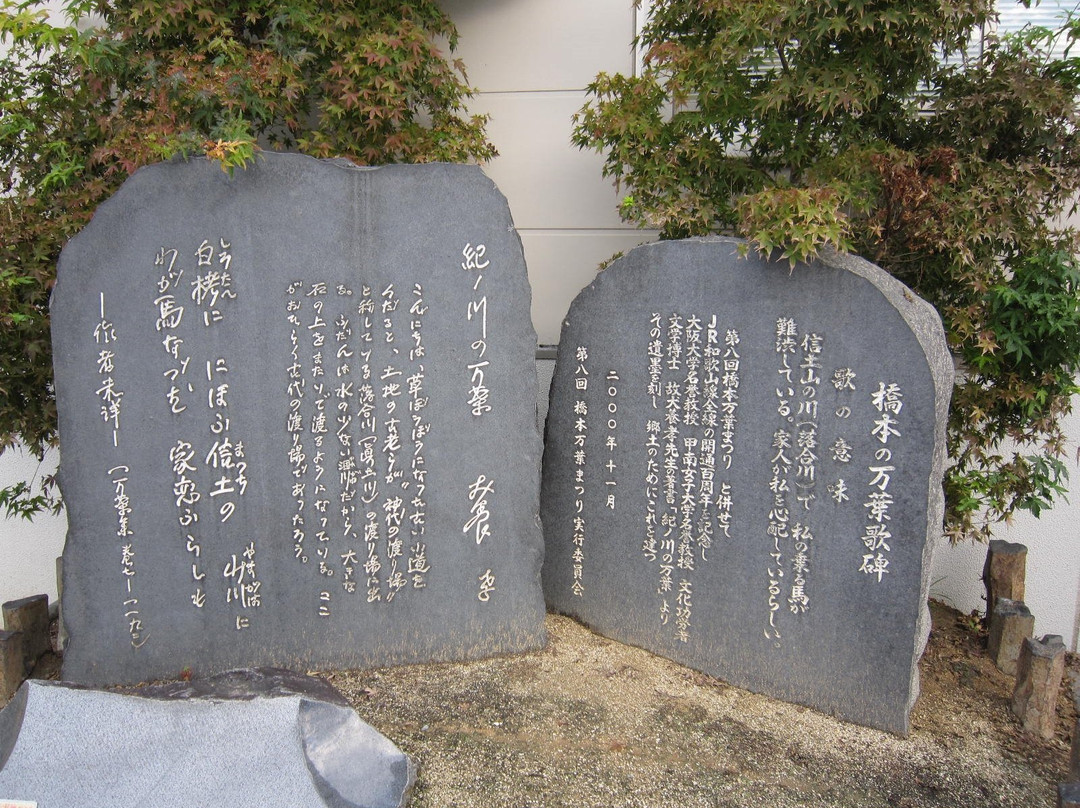 橋本の万葉歌碑
歌の意味
信土山の川(落合川)で 私の乗る馬が
難渋している。家人が私を心配しているらしい。
第八回橋本万葉まつり と併せて
JR和歌山線全線の開通百周年を記念し
大阪大学名誉教授 甲南女子大学名誉教授 文化功労者
文学博士 故犬養孝先生著書「紀ノ川の万葉」より
その遺墨を刻し 郷土のためにこれを建つ
二〇〇〇年十一月
第八回 橋本万葉まつり実行委員会
紀ノ川の万葉 犬養 孝
こんにちは、草ぼうぼうになった古い小道を
くだると、土地の古老らが“神代の渡り場”
と称している落合川(真土川)の渡り場に出
る。ふだんは水の少ない涸川だから、大きな
石の上をまたいで渡るようになっている。ここ
がおそらく古代の渡り場であったろう。
白栲に にほふ信土の 山川に
わが馬なづむ 家恋ふらしも
―作者未詳― (万葉集 巻七―一一九二)